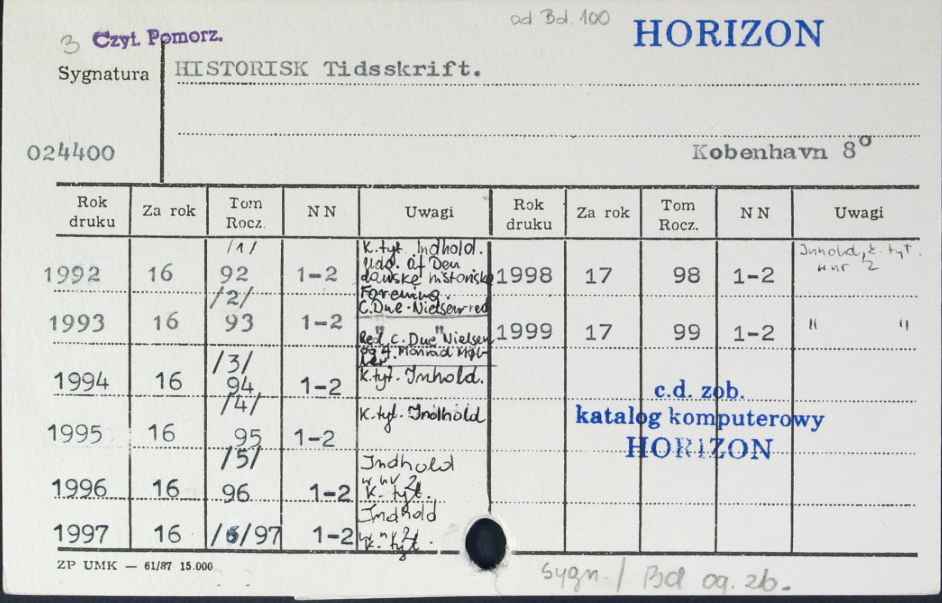 ad Bd. 100
3 Czyt. Pomorz.
HORIZON
Sygnatura HISTORISK Tidsskrift.
024400
Kobenhavn 8°
Rok druku Za rok Tom Rocz. NN Uwagi Rok druku Za rok Tom Rocz. NN Uwagi
1992 16 /1/ 92 1-2 K.tyt. Indhold. Udg. af Den danske historiske Forening. C. Due-Nielsen red 1998 17 98 1-2 Innhold, k. tyt. w nr 2
1993 16 /2/ 93 1-2 " " Red. C. Due Nielsen og 1999 17 99 1-2 " "
1994 16 /3/ 94 1-2 K.tyt. Inhold.
1995 16 /4/ 95 1-2 K.tyt. Indhold
1996 16 /5/ 96 1-2 Indhold w nr 2 K. tyt.
1997 16 /6/97 1-2 Indhold w nr 2 K. tyt.
c.d. zob.
katalog komputerowy
HORIZON
ZP UMK — 61/87 15.000
Sygn. / Bd og. zb.